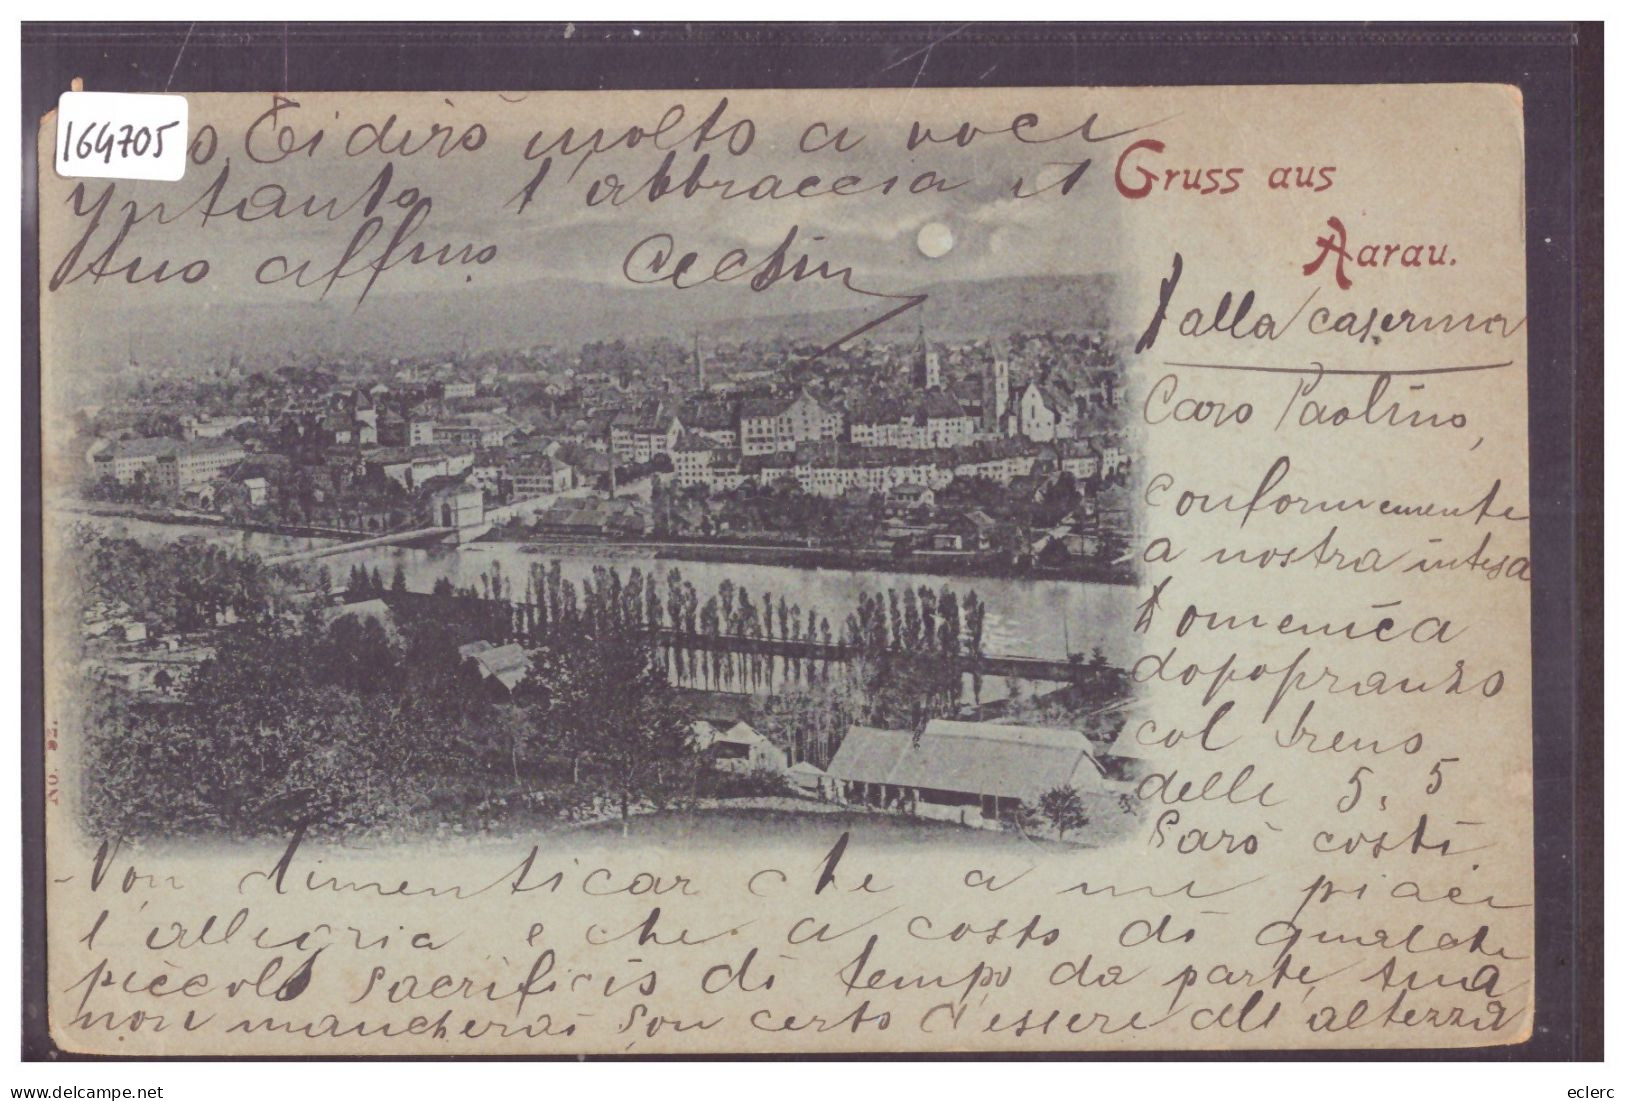 164705
Ti dirò molto a voce
Yntanto t'abbraccia il
tuo affmo. Cechin
Gruss aus
Aarau.
Dalla caserma
Caro Paolino,
conformemente
a nostra intesa
Domenica
dopopranzo
col treno
delle 5,5
Sarò costì.
Non dimenticar che a me piace
l'allegria e che a costo di qualche
piccolo sacrificio di tempo da parte tua
non mancherai son certo d'essere all'altezza
No.
delcampe.net
eclerc